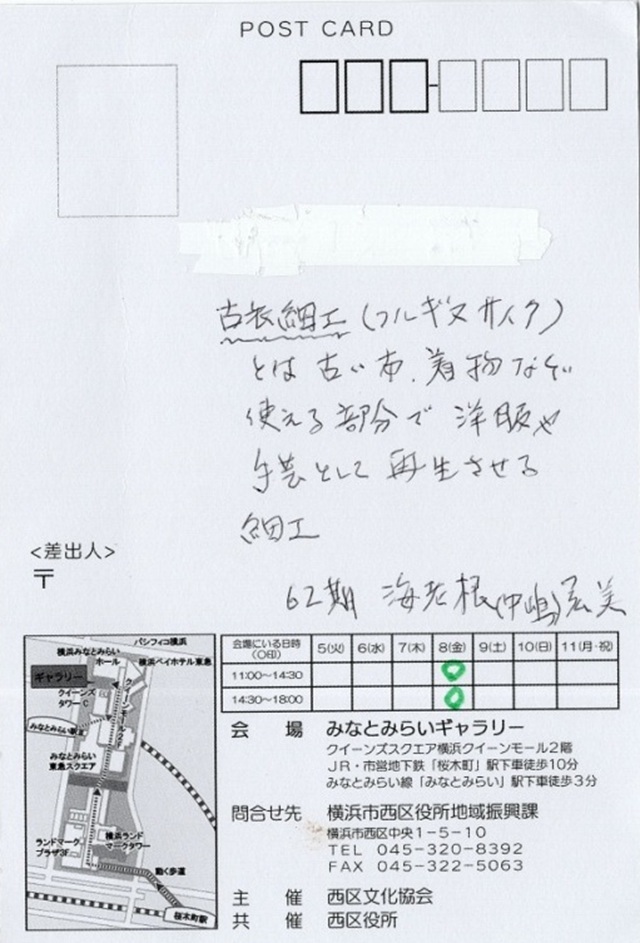 POST CARD
古衣細工(フルギヌサイク)
とは古い布、着物などの
使える部分で洋服や
手芸として再生させる
細工
<差出人>
〒
62期 海老根(中嶋)宏美
パシフィコ横浜
横浜みなとみらい
ホール
横浜ベイホテル東急
ギャラリー
クイーンズ
タワーC
クイーンモール2F
みなとみらい駅
みなとみらい
東急スクエア
ランドマーク
プラザ3F
横浜ランド
マークタワー
動く歩道
桜木町駅
会場にいる日時
(○印) 5(火) 6(水) 7(木) 8(金) 9(土) 10(日) 11(月・祝)
11:00~14:30 ○
14:30~18:00 ○
会場 みなとみらいギャラリー
クイーンズスクエア横浜クイーンモール2階
JR・市営地下鉄「桜木町」駅下車徒歩10分
みなとみらい線「みなとみらい」駅下車徒歩3分
問合せ先 横浜市西区役所地域振興課
横浜市西区中央1-5-10
TEL 045-320-8392
FAX 045-322-5063
主催 西区文化協会
共催 西区役所